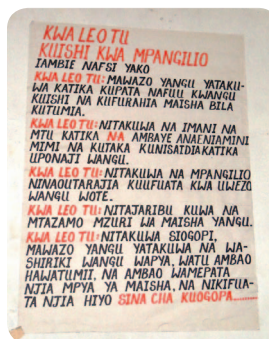 KWA LEO TU
KUISHI KWA MPANGILIO
IAMBIE NAFSI YAKO
KWA LEO TU: MAWAZO YANGU YATAKU-
WA KATIKA KUPATA NAFUU KWANGU
KUISHI NA KUFURAHIA MAISHA BILA
KUTUMIA.
KWA LEO TU: NITAKUWA NA IMANI NA
MTU KATIKA NA AMBAYE ANAENIAMINI
MIMI NA KUTAKA KUNISAIDIA KATIKA
UPONAJI WANGU.
KWA LEO TU: NITAKUWA NA MPANGILIO
NINAOUTARAJIA KUUFUATA KWA UWEZO
WANGU WOTE.
KWA LEO TU: NITAJARIBU KUWA NA
MTAZAMO MZURI WA MAISHA YANGU.
KWA LEO TU: NITAKUWA SIOGOPI,
MAWAZO YANGU YATAKUWA NA WA-
SHIRIKI WANGU WAPYA, WATU AMBAO
HAWATUMII, NA AMBAO WAMEPATA
NJIA MPYA YA MAISHA, NA NIKIFUA-
TA NJIA HIYO SINA CHA KUOGOPA..........